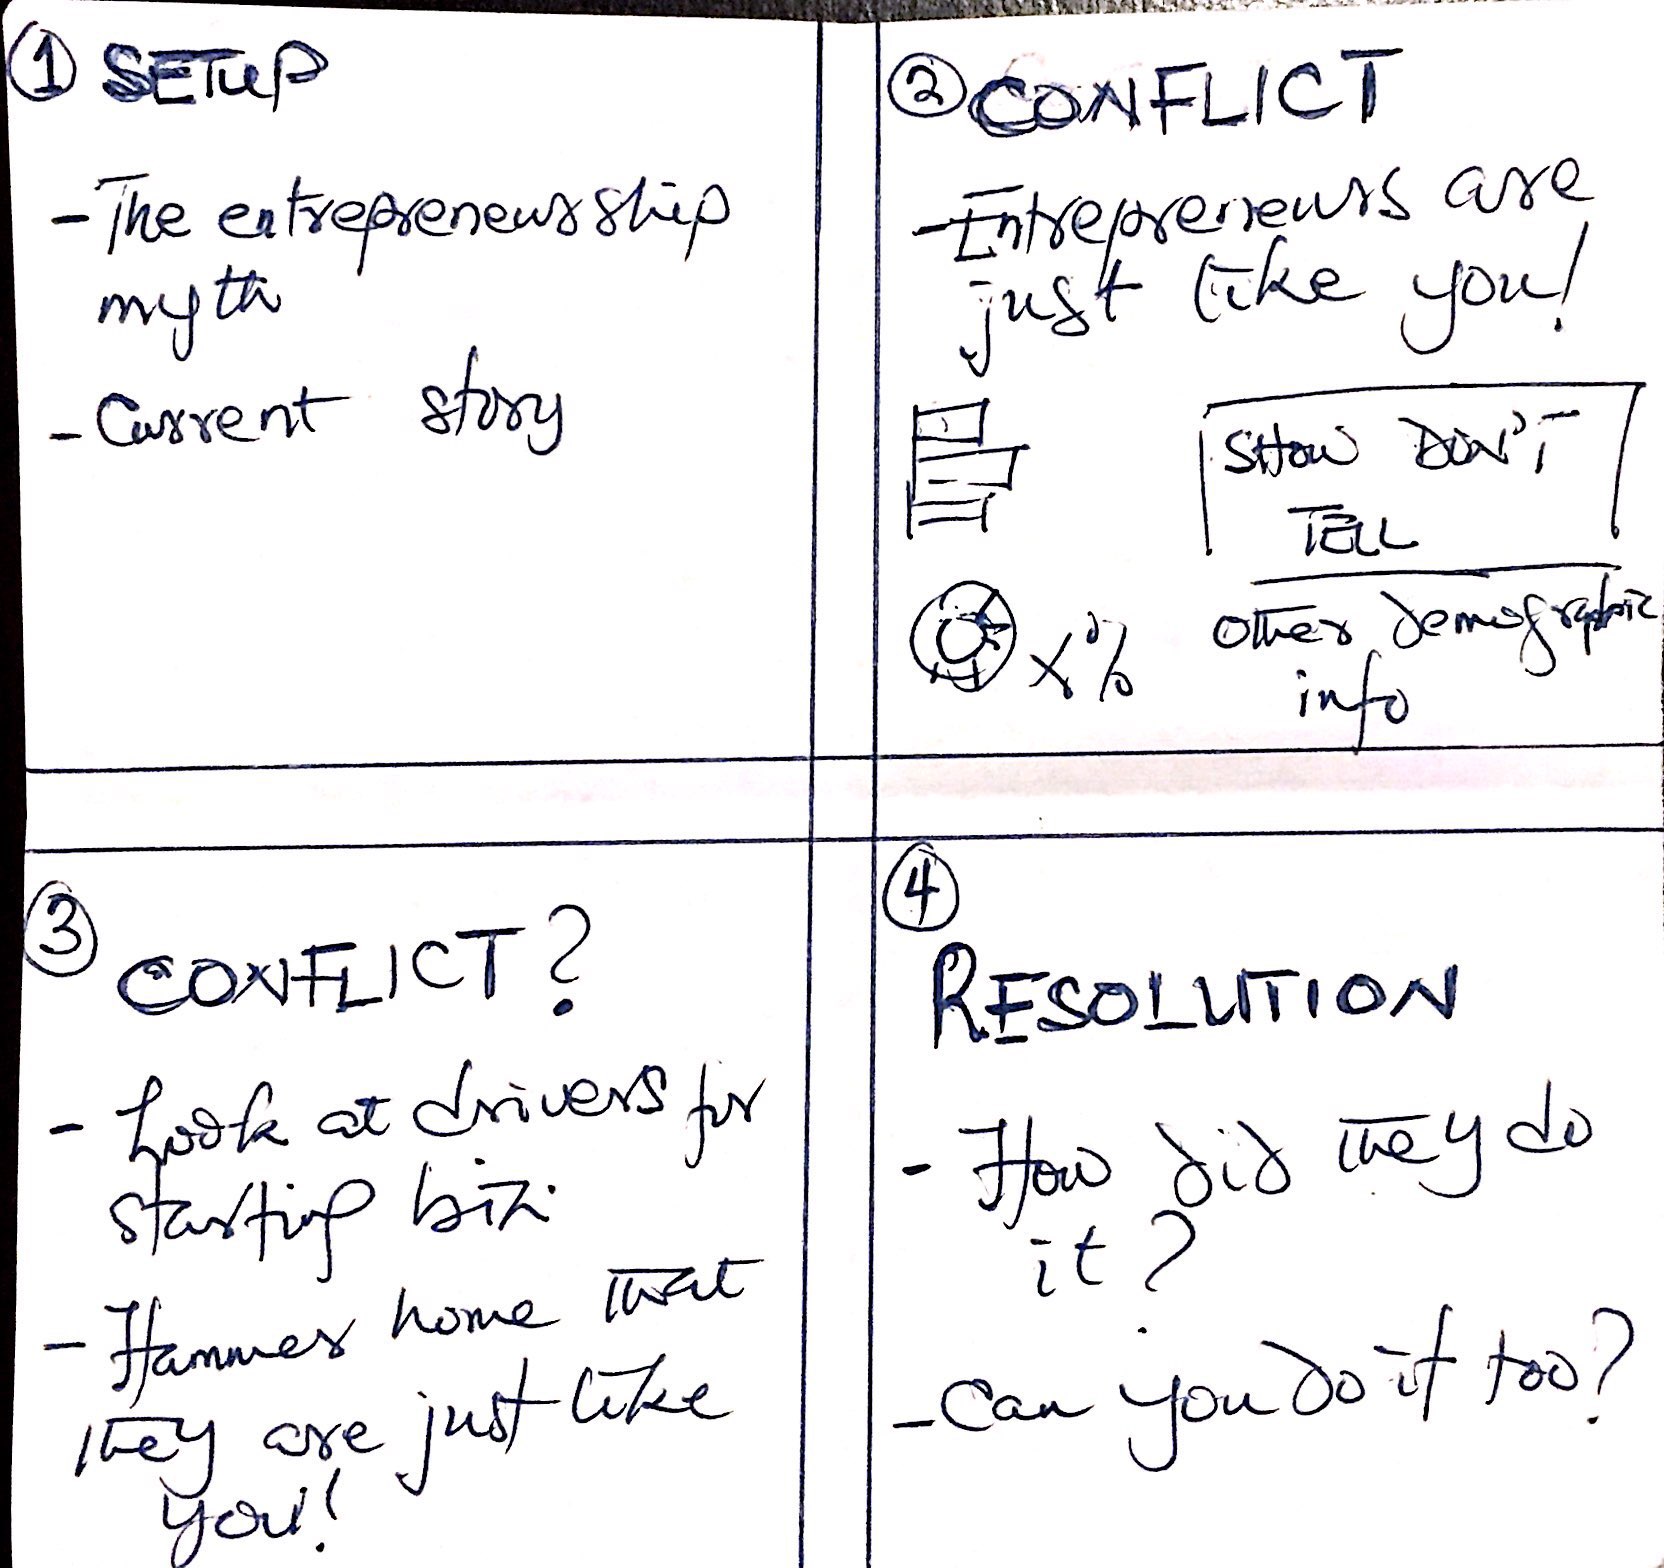 ① SETUP
- The entrepreneurship
myth
- Current story
② CONFLICT
- Entrepreneurs are
just like you!
SHOW DON'T
TELL
X%
other demographic
info
③ CONFLICT?
- Look at drivers for
starting biz.
- Hammer home that
they are just like
you!
④
RESOLUTION
- How did they do
it?
- Can you do it too?